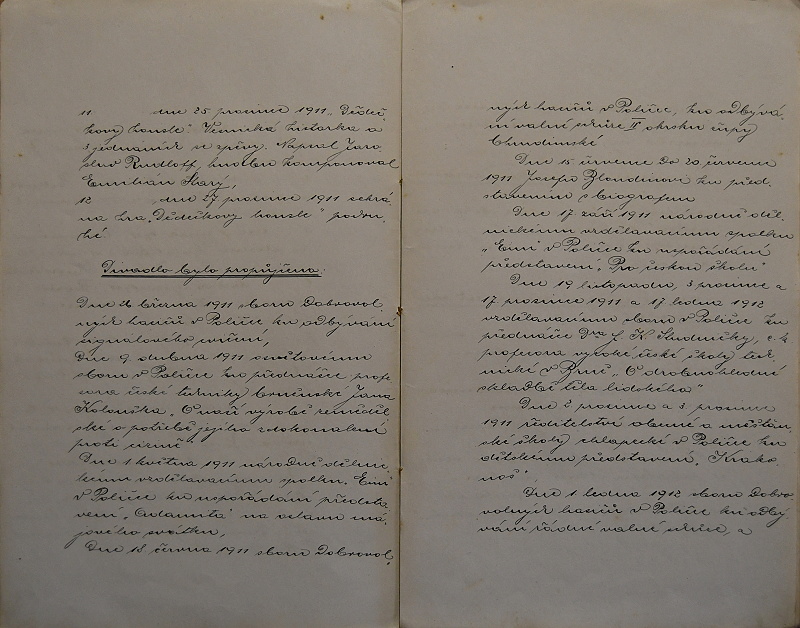 11 dne 25 prosince 1911 „Dědeč-
kovy housle" Vesnická historka o
3 jednáních se zpěvy. Napsal Jaro-
slav Rudloff, hudbu komponoval
Emilián Starý,
12 dne 27 prosince 1911 sehrá-
na hra „Dědečkovy housle" podru-
hé.
Divadlo bylo propůjčeno:
Dne 26 března 1911 sboru Dobrovol-
ných hasičů v Poličce ku odbývání
signálového cvičení,
Dne 9. dubna 1911 osvětovému
sboru v Poličce ku přednášce profe-
sora české techniky brněnské Jana
Kolouška „O naší výrobě zeměděl-
ské a potřebě jejího zdokonalení
proti cizině"
Dne 1 května 1911 národně dělnic-
kému vzdělávacímu spolku „Erni"
v Poličce ku uspořádání předsta-
vení „Adamita" na oslavu má-
jového svátku,
Dne 18 června 1911 sboru Dobrovol-
ných hasičů v Poličce, ku odbývá-
ní valné schůze II okrsku župy
Chrudimské
Dne 15 července do 20 července
1911 Josefu Blondinovi ku před-
stavením s biografem
Dne 17. září 1911 národně děl-
nickému vzdělávacímu spolku
„Erni" v Poličce ku uspořádání
představení „Pro českou školu"
Dne 19 listopadu, 3 prosince a
17 prosince 1911 a 17 ledna 1912
vzdělávacímu sboru v Poličce ku
přednášce Dra F. K. Studničky, c. k.
profesora vysoké české školy tech-
nické v Brně „O drobnohledné
skladbě těla lidského"
Dne 2 prosince a 3 prosince
1911 ředitelství obecné a měšťan-
ské školy chlapecké v Poličce ku
dětskému představení „Krako-
noš"
Dne 1 ledna 1912 sboru Dobro-
volných hasičů v Poličce ku odbý-
vání řádné valné schůze, a